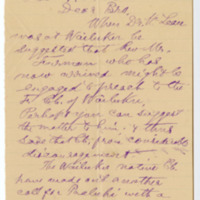 Dear Bro.
When Dr. McLean
was at Wailuku he
suggested that Rev. Mr.
Turman who has
now arrived might be
engaged to preach to the
Ch. of Wailuku,
Perhaps you can suggest
the matter to him. & thus
save that Ch. from considerable
discouragement
The Wailuku native Ch.
have made out another
call for Pualuki with a